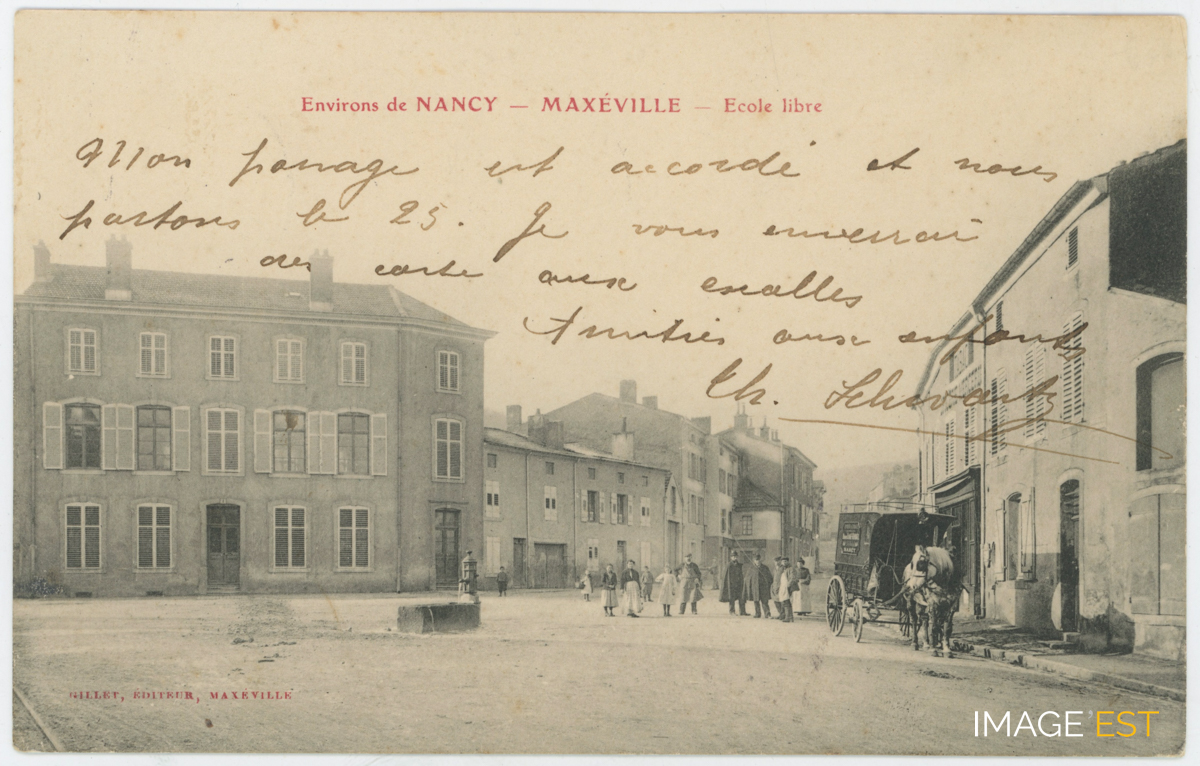 Environs de NANCY — MAXÉVILLE — Ecole libre
Mon passage est accordé et nous
partons le 25. Je vous enverrai
des carte aux escalles
Amitiés aux enfants
Ch. Schwartz
NANCY
GILLET, EDITEUR, MAXEVILLE
IMAGE'EST